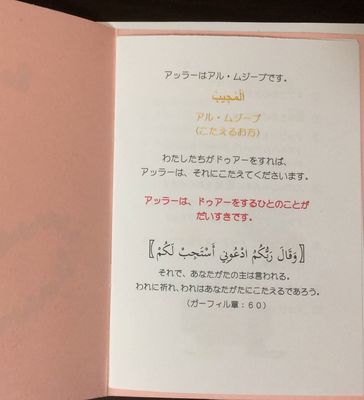 アッラーはアル・ムジーブです。
الْمُجِيبُ
アル・ムジーブ
(こたえるお方)
わたしたちがドゥアーをすれば、
アッラーは、それにこたえてくださいます。
アッラーは、ドゥアーをするひとのことが
だいすきです。
﴿وَقَالَ رَبُّكُمُ ادْعُونِي أَسْتَجِبْ لَكُمْ﴾
それで、あなたがたの主は言われる。
われに祈れ、われはあなたがたにこたえるであろう。
(ガーフィル章:60)